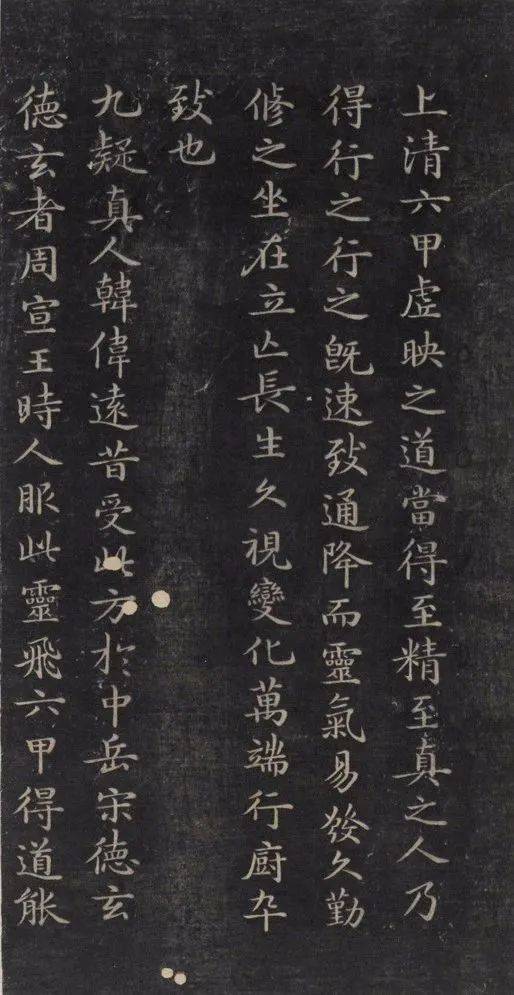 上清六甲虛映之道當得至精至真之人乃
得行之行之既速致通降而靈氣易發久勤
脩之坐在立亡長生久視變化萬端行廚卒
致也
九疑真人韓偉遠昔受此方於中岳宋德玄
德玄者周宣王時人服此靈飛六甲得道能